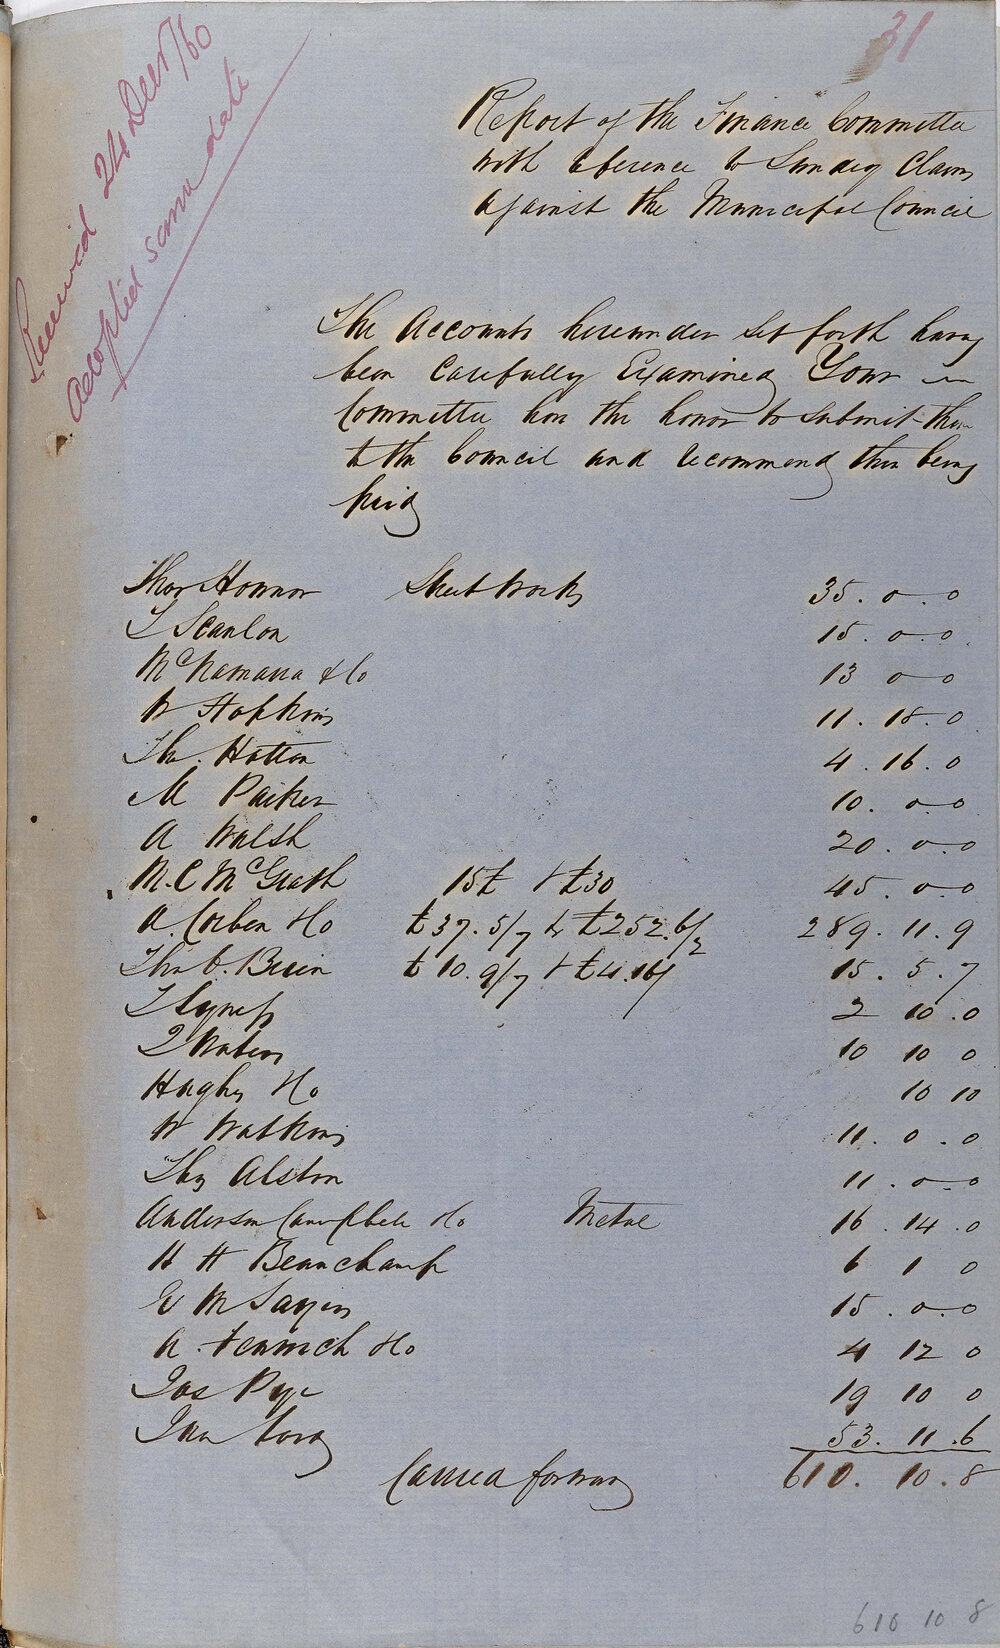 31
Received 24 Decr /60
Adopted same date
Report of the Finance Committee
with reference to Sundry Claims
against the Municipal Council
The Accounts hereunder set forth having
been Carefully Examined Your
Committee have the honor to submit them
to the Council and recommend them being
paid
Thos Honnor Street Works 35. 0. 0
T Scanlon 15. 0. 0
McNamara & Co 13 0 0
W Hopkins 11. 18. 0
Thos. Hatton 4. 16. 0
M Parker 10. 0. 0
A Walsh 20. 0. 0
M. C McGrath 15£ + £30 45. 0. 0
A. Corben & Co £37. 5/7 & £252. 6/2 289. 11. 9
Thos C. Brein £10. 9/7 + £4. 16/ 15. 5. 7
T Syness 2 10. 0
J Waters 10 10 0
Hughes & Co 10 10
W Watkins 11. 0. 0
Thos Alston 11. 0. 0
Anderson Campbell & Co Metal 16. 14. 0
H H Beauchamp 6 1 0
E M Sayers 15. 0. 0
A. Fenwick & Co 4 12 0
Jas Pye 19 10 0
Jno Ford 53. 11. 6
Carried forward 610. 10. 8
610 10 8